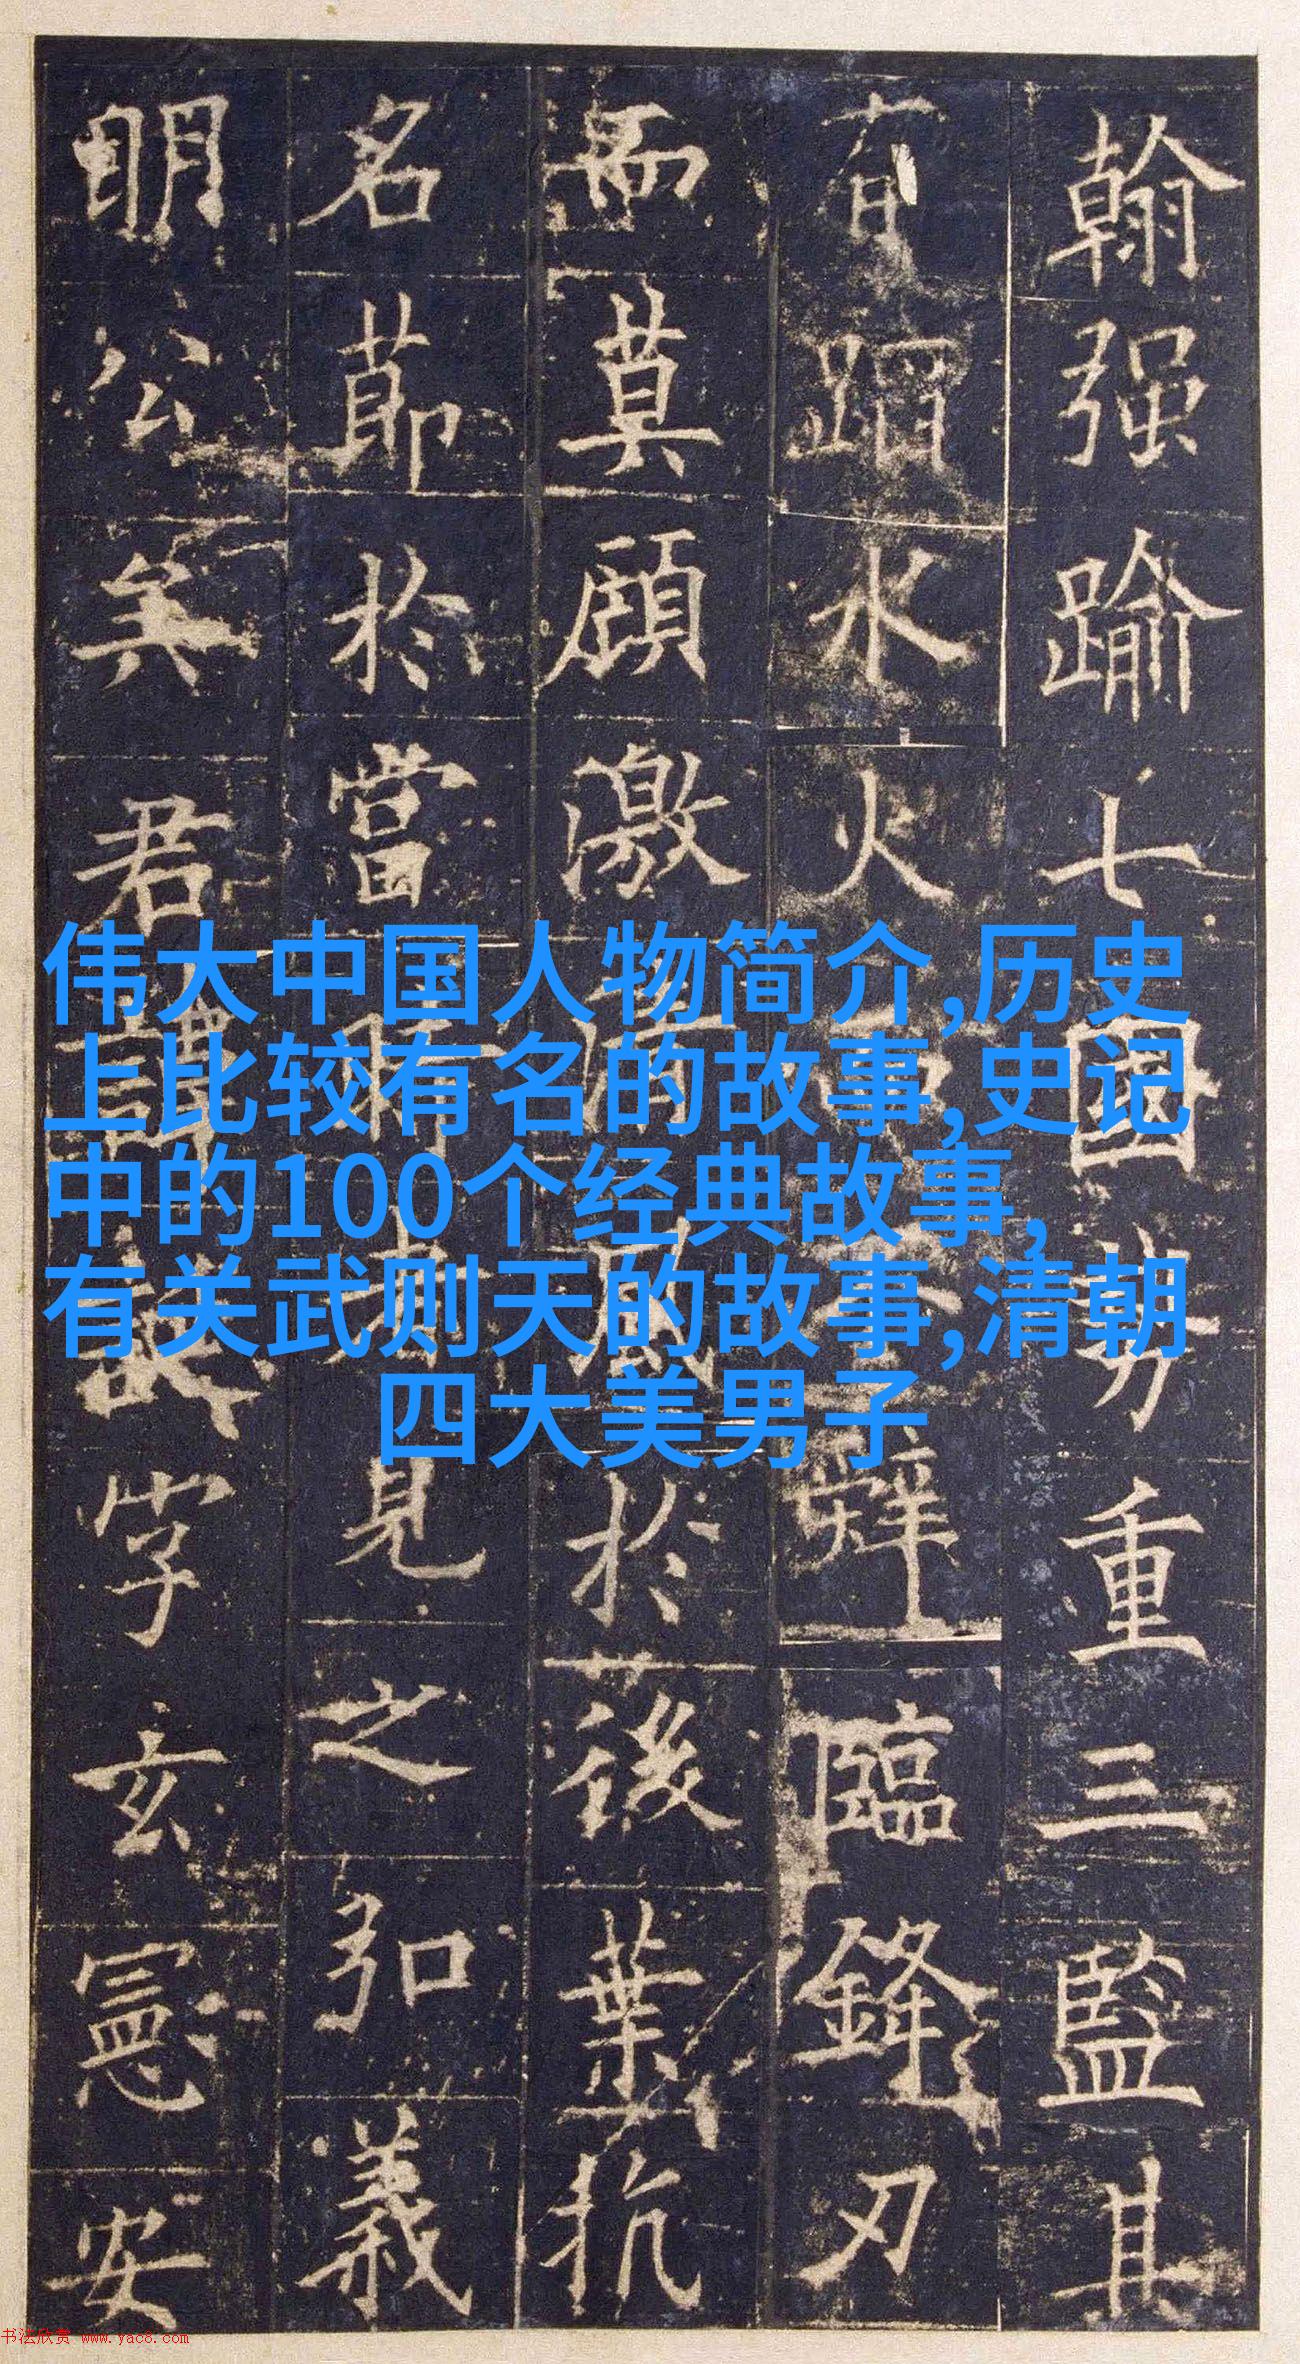 翰强踰七國勢重三監其
有蹈水火而不辭臨鋒刃
而莫顧激清風於後葉抗
名節於當時者見之弘義
明公矣君諱誕字玄憲安
伟大中国人物简介,历史
上比较有名的故事,史记
中的100个经典故事,
有关武则天的故事,清朝
四大美男子
书法欣赏 www.yac8.com